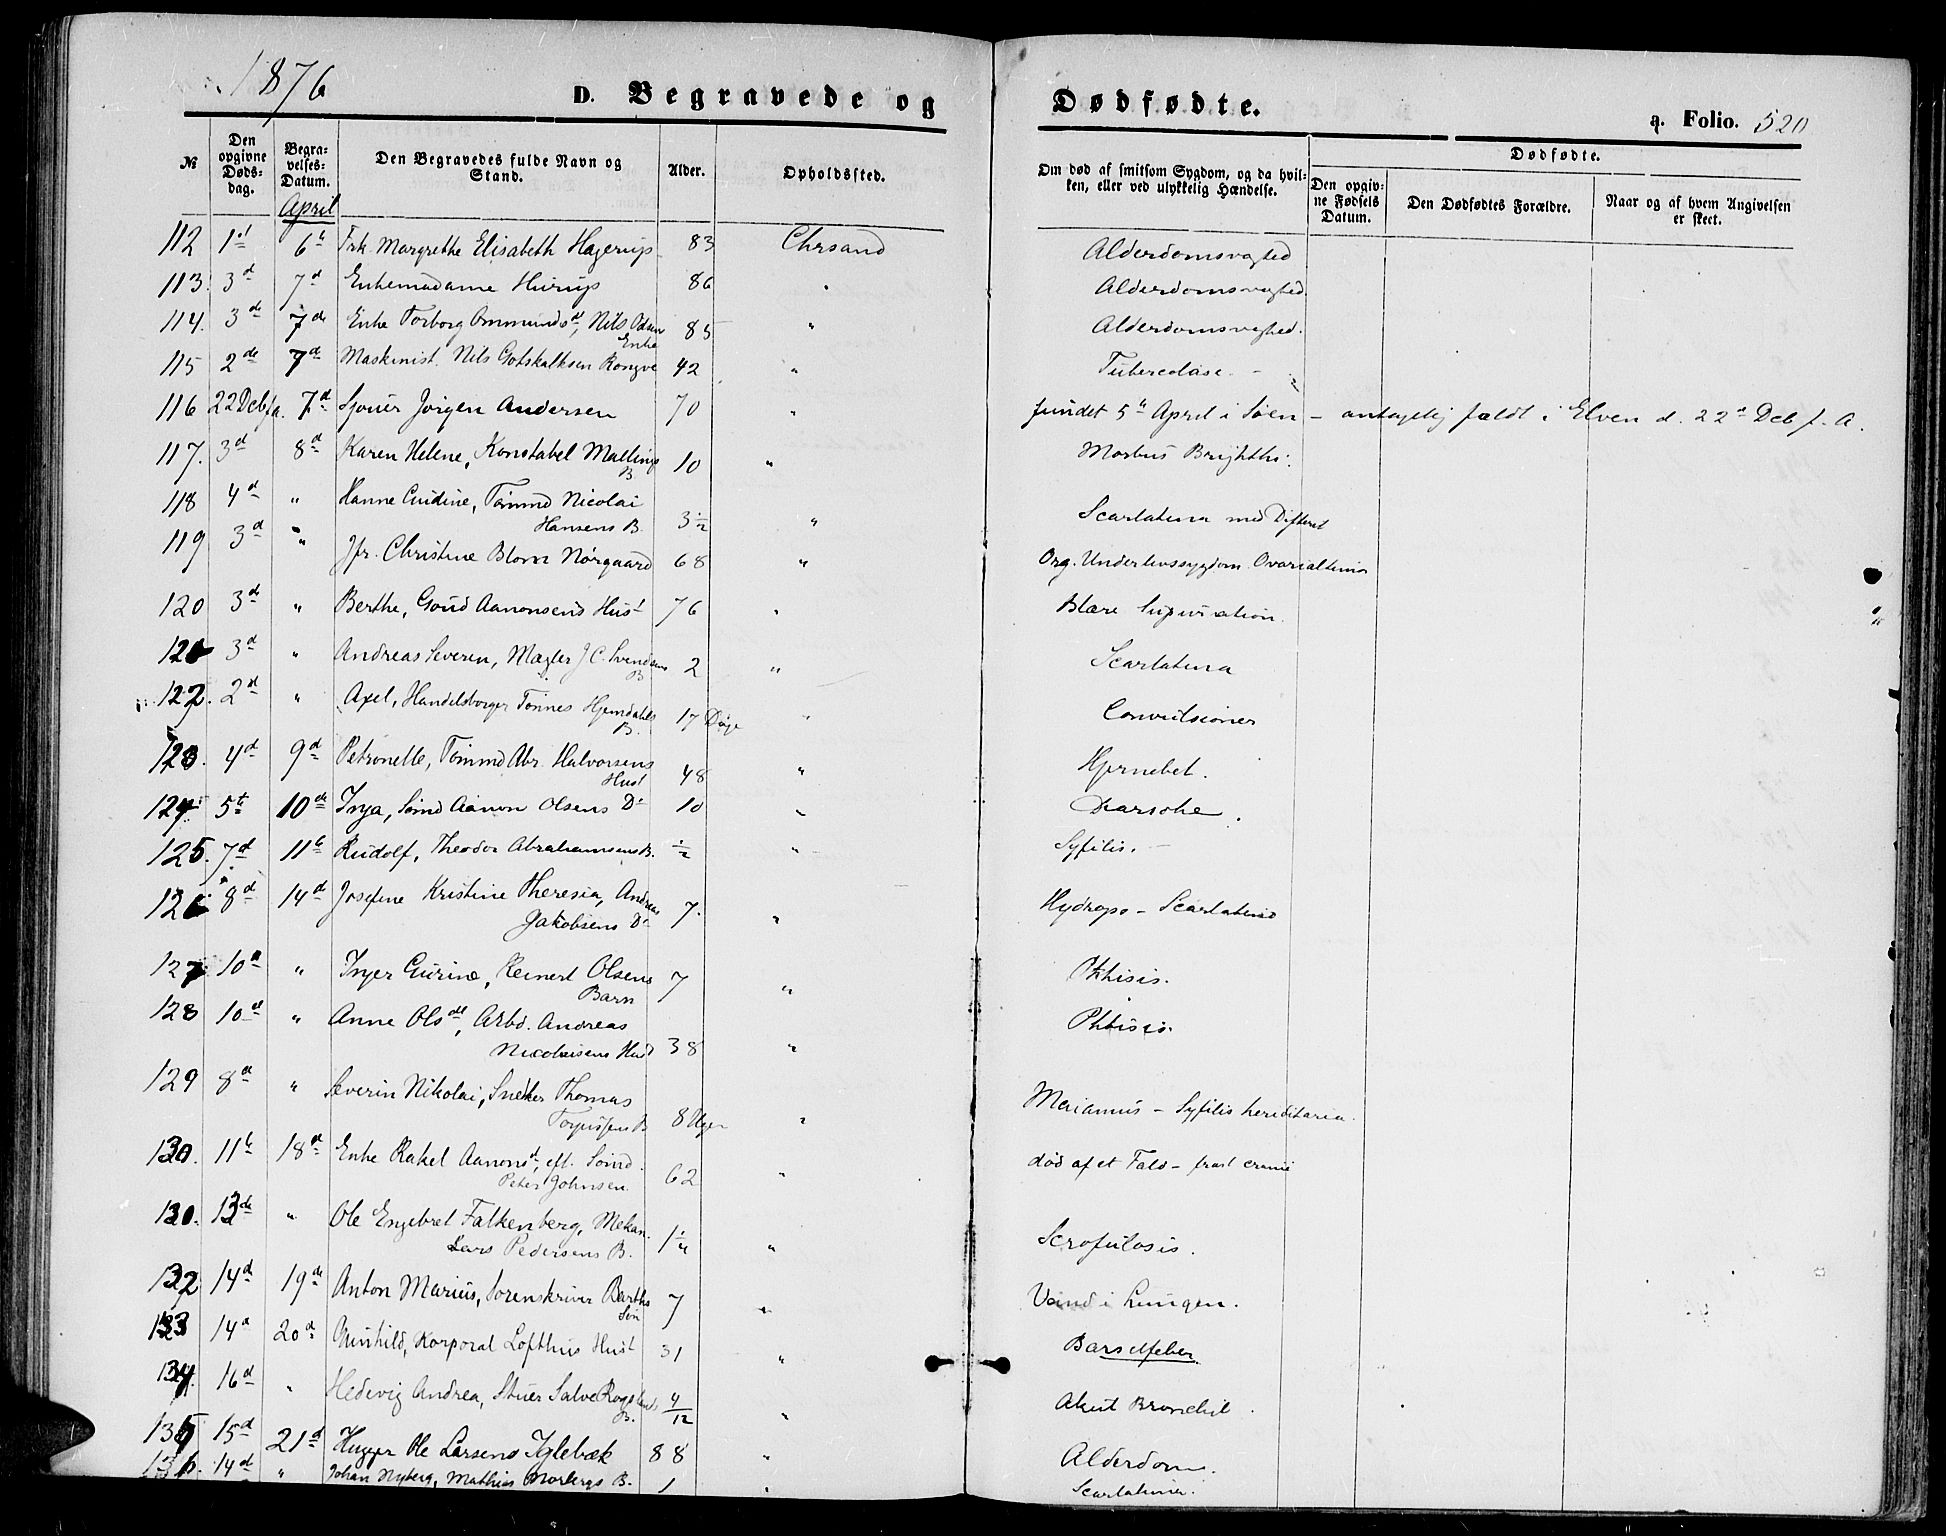 1876
D. Begravede og Dødfødte.
q. Folio. 520
№ Den opgivne Dødsdag. Begravelses-Datum. Den Begravedes fulde Navn og Stand. Alder. Opholdssted. Om død af smitsom Sygdom, og da hvilken, eller ved ulykkelig Hændelse. Dødfødte. Den opgivne Fødsels Datum. Den Dødfødtes Forældre. Naar og af hvem Angivelsen er skeet.
April
112 1st 6te Frk. Margrethe Elisabeth Hagerup 83 Chrsand Alderdomsvaghed
113. 3d 7d Enkemadame Hurup 86 " Alderdomsvaghed.
114. 3de 7de Enke Torborg Ommundsdt, Nils Odsen Enke 85 " Alderdomsvaghed.
115 2de 7de Maskinist. Nils Gotskalksen Rongve 42 " Tuberculose.
116 22 Deb f a. 7d Sjouer Jørgen Andersen 70 " fundet 5te April i Søen – antagelig faldt i Elven d. 22d Deb f. A.
117. 3d 8d Karen Helene, Konstabel Mallings B 10 " Morbus Brighthi.
118 4d " Hanne Gudine, Tømmd Nicolai Hansens B. 3 ½ " Scarlatina med Difterit
119 3d " Jfr. Christine Blom Nørgaard 68 " Org. Underlivssygdom Ovarialtumor
120 3de " Berthe, Gaud Aanonsens Hust 76 " Blære Supuration
121 3d " Andreas Severin, Mægler J C. Svendsens B 2 " Scarlatina
122. 2d " Axel, Handelsborger Tønnes Hjemdahls B. 17 Dage " Convulsioner
123. 4d 9d Petronelle, Tømmd Abr. Halvorsens Hust 48 " Hjernebet.
124 5te 10de Inga, Sømd Aanon Olsens Dr 10 "
125. 7d 11te Rudolf, Theodor Abrahamsens B. ½ " Syfilis.
126 8d 14d Josefine Kristine Theresia, Andreas Jakobsens Dr 7. " Hydrops – Scarlatina
127 10d " Inger Gurine, Reinert Olsens Barn 7 " Phthisis.
128 10d " Anne Olsdt, Arbd. Andreas Nicolaisens Hust 38 " Phtisis.
129 8d " Severin Nikolai, Snekker Thomas Torjussens B 8 Uger " – Syfilis hereditaria.
130. 11te 18d Enke Rakel Aanonsd, eft. Sømd. Peter Johnsen. 62 " død af et Fald – fract cranii
130. 13de " Ole Engebret Falkenberg, Mekan. Lars Pedersens B. 1 ¼ " Scrofulosis.
132 14d 19de Anton Marius, Sorenskriver Barths Søn 7 " Vand i Lungen.
133 14d 20d Gunhild, Korporal Lofthus Hust 31 " Barselfeber
134. 16d " Hedevig Andrea, Stuer Salve Rogslands B. 4/12 " Akut Bronchit.
135 15d 21d Hugger Ole Larsens Iglebæk 88 " Alderdom.
136. 14d " Johan Nyberg, Mathias Norbergs B. 1 " Scarlatina.